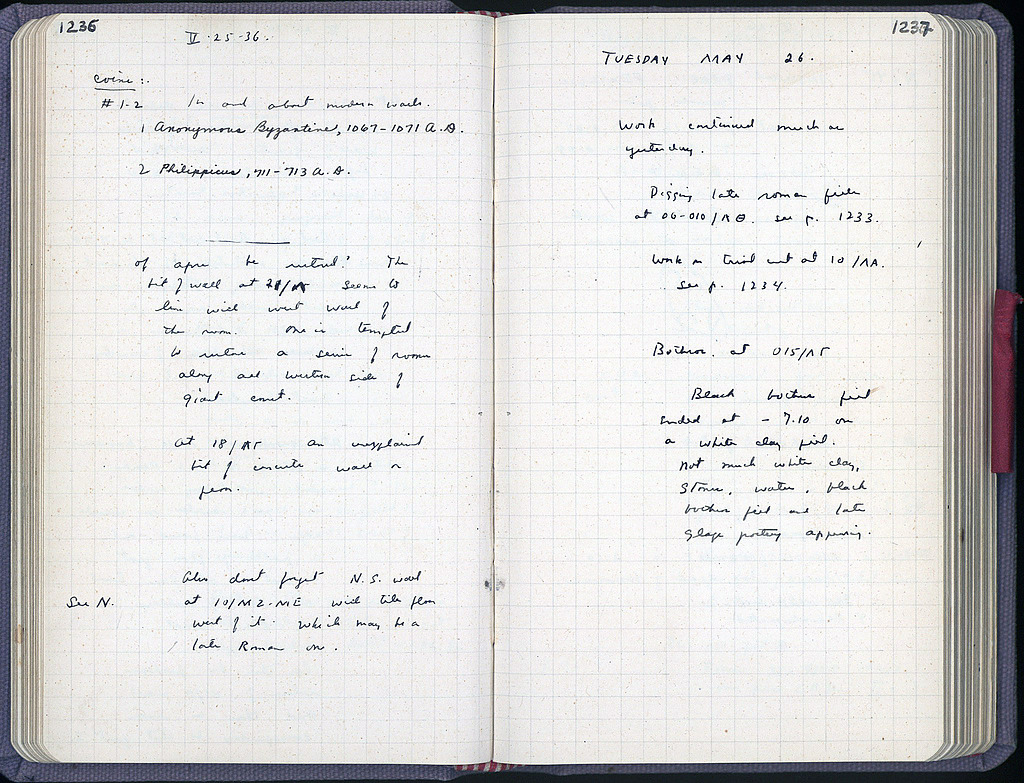 1236
V·25·36.
coins:
#1-2 In and about modern walls.
1 Anonymous Byzantine, 1067-1071 A.D.
2 Philippicus, 711-713 A.D.
of apse be ? The
bit of wall at seems to
line with west wall of
the room. One is tempted
to restore a series of rooms
along all western side of
giant court.
At 18/ΛΓ an unexplained
bit of concrete wall or
floor.
Also don't forget N.S. wall
See N. at 10/ΜΖ-ΜΕ with tile floor
west of it. Which may be a
late Roman one.
1237
TUESDAY MAY 26.
Work continued much as
yesterday.
Digging late roman fill
at 06-010/ΛΘ. see p. 1233.
Work in trial cut at 10/ΛΑ.
see p. 1234.
Bothros. at 015/ΛΓ
Black bothros fill
ended at -7.10 on
a white clay fill.
Not much white clay,
Stones, water, black
bothros fill and late
glaze pottery appearing.